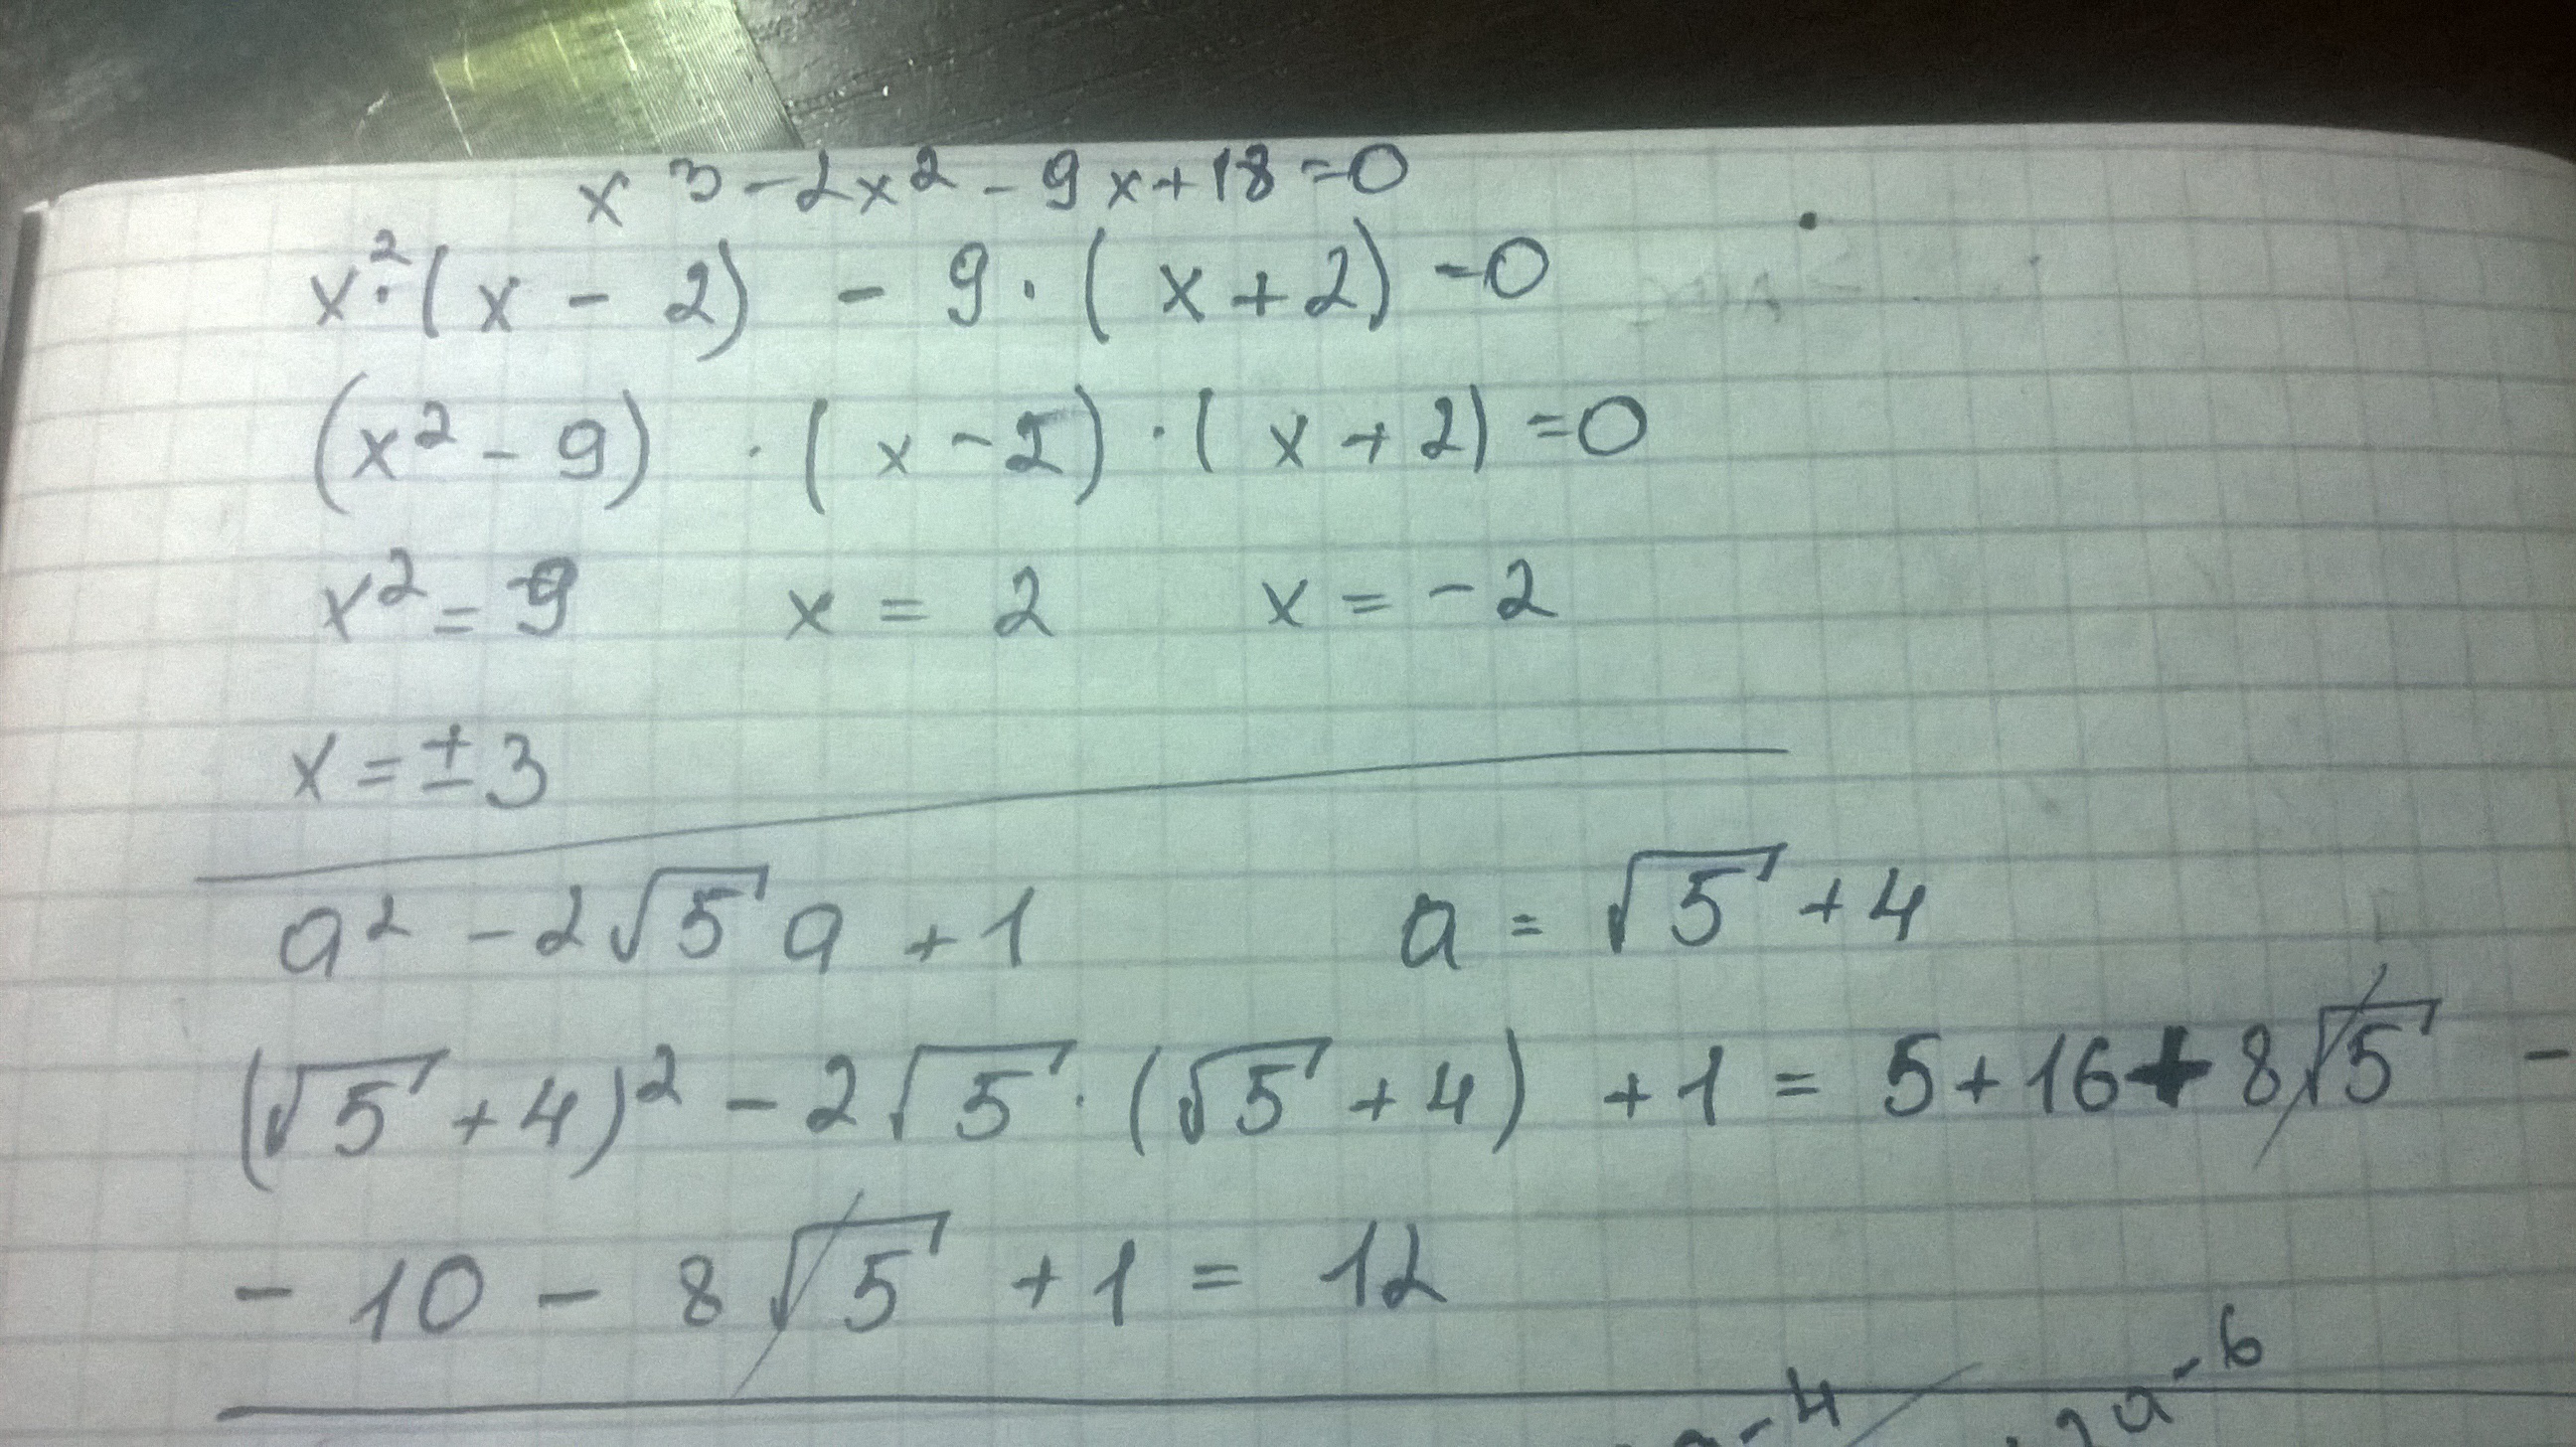 x³ - 2x² - 9x + 18 = 0
x² · (x - 2) - 9 · (x + 2) = 0
(x² - 9) · (x - 2) · (x + 2) = 0
x² = 9 x = 2 x = -2
x = ± 3
a² - 2√5 a + 1 a = √5 + 4
(√5 + 4)² - 2√5 · (√5 + 4) + 1 = 5 + 16 + 8√5 -
- 10 - 8√5 + 1 = 12